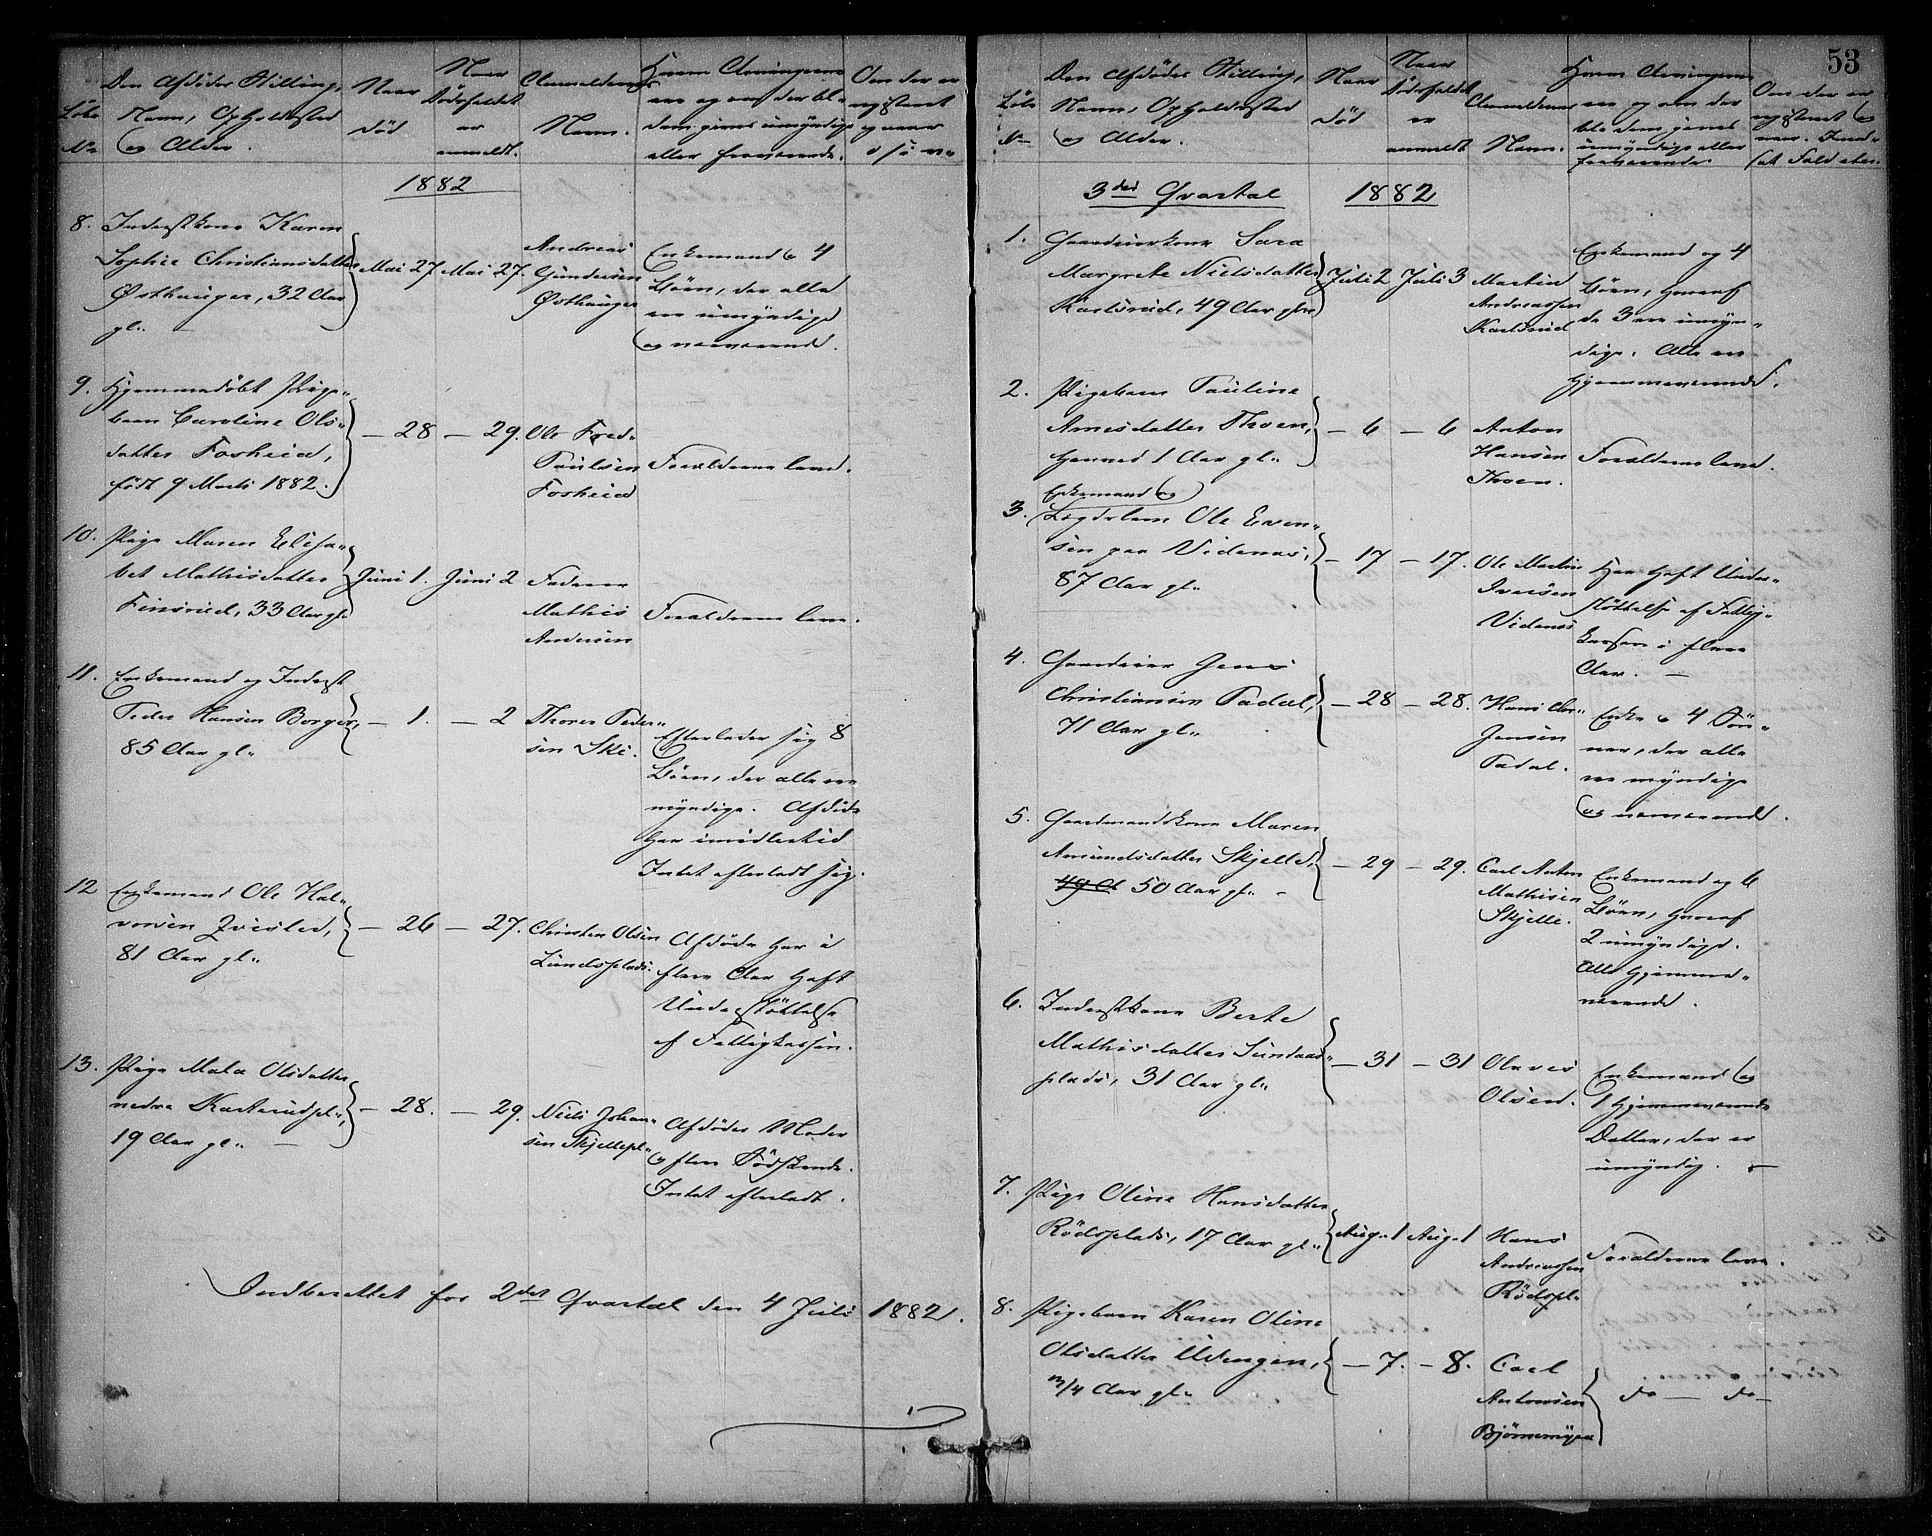 53
Løbe
No
Den Afdødes Stilling,
Navn, Opholdssted
og Alder.
Naar
død
Naar
Dødsfaldet
er
anmeldt.
Anmelderens
Navn.
Hvem Arvingerne
ere og om der bl.
dem gives umyndige
eller fraværende.
Om der er
registreret
og naar
1882
8. Inderstkone Karen
Sophie Christiansdatter
Østhauger, 32 Aar
gl.
Mai 27 Mai 27.
Andreas
Gundersen
Østhauger
Enkemand og 4
Børn, der alle
ere umyndige
og nærværende.
9. Hjemmedøbt Pige-
barn Caroline Ols-
datter Fosheid,
født 9 Marts 1882.
— 28 — 29.
Ole Fred-
Paulsen
Fosheid
Forældrene leve.
10. Pige Maren Elisa-
bet Mathisdatter
Finsrud, 33 Aar gl.
Juni 1. Juni 2
Faderen
Mathis
Andersen
Forældrene leve.
11. Enkemand og Inderst
Peder Hansen Borger,
85 Aar gl.
— 1. — 2
Thorer Peder-
sen Ske.
Efterlader sig 8
Børn, der alle ere
myndige. Afdøde
har imidlertid
Intet efterladt sig.
12 Enkemand Ole Hal-
vorsen
81 Aar gl.
— 26 — 27.
Christen Olsen
Lundsplads.
Afdøde har i
flere Aar haft
Understøttelse
af Fattigkassen.
13. Pige Mala Olsdatter
nedre Karterudpl.,
19 Aar gl. —
— 28. — 29.
Niels Johan-
sen Skjellepl.
Afdødes Moder
og flere Sødskende.
Intet efterladt.
Indberettet for 2det Qvartal den 4 Juli 1882.
Løbe
No
Den Afdødes Stilling,
Navn, Opholdssted
og Alder.
Naar
død
Naar
Dødsfaldet
er
anmeldt
Anmelderens
Navn.
Hvem Arvingerne
ere og om der
bl. dem gives
umyndige eller
fraværende
Om der er
registreret og
naar. Ind-
sat Fald
3die Qvartal 1882
1. Gaardeierkone Sara
Margrethe Nielsdatter
Karlsrud, 49 Aar gl.
Juli 2 Juli 3
Martin
Andreassen
Karlsrud
Enkemand og 4
Børn, hvoraf
de 3 ere umyn-
dige. Alle ere
hjemmeværende.
2. Pigebarn Pauline
Arnesdatter Thoen,
henved 1 Aar gl.
— 6 — 6
Anton
Hansen
Thoen.
Forældrene leve.
Enkemand og
3. Lægdslem Ole Even-
sen paa Videnæs,
87 Aar gl.
— 17 — 17.
Ole Martin
Iversen
Videnæs
Har haft Under-
støttelse af Fattig-
kassen i flere
Aar. —
4. Gaardeier Jens
Christiansen Padal,
71 Aar gl.
— 28 — 28.
Hans Chr.
Jensen
Padal.
Enke og 4 Søn-
ner, der alle
ere myndige
og nærværende.
5. Gaardmandskone Maren
Amundsdatter Skjelle,
49 A 50 Aar gl. —
— 29 — 29.
Carl Anton
Mathisen
Skjelle.
Enkemand og 6
Børn, hvoraf
2 umyndige.
Alle hjemme-
værende.
6. Inderstkone Berte
Mathisdatter Sundaas-
plads, 31 Aar gl.
— 31 — 31
Olaves
Olsen.
Enkemand og
1 hjemmeværende
Datter, der er
umyndig. —
7. Pige Oline Hansdatter
Rødsplads, 17 Aar gl.
Aug. 1 Aug. 1
Hans
Andreassen
Rødspl.
Forældrene leve.
8. Pigebarn Karen Oline
Olsdatter Udengen,
3/4 Aar gl.
— 7. — 8.
Carl
Antonsen
Bjørnemyren
do — do —